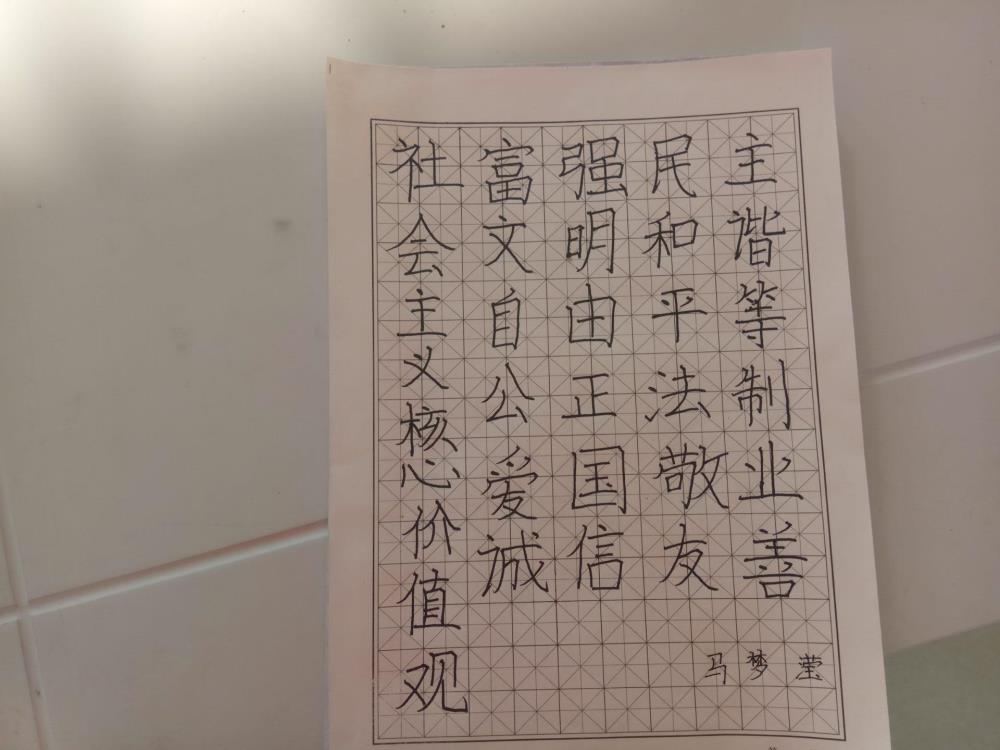 社会主义核心价值观
富强民主
文明和谐
自由平等
公正法制
爱国敬业
诚信友善
马梦莹